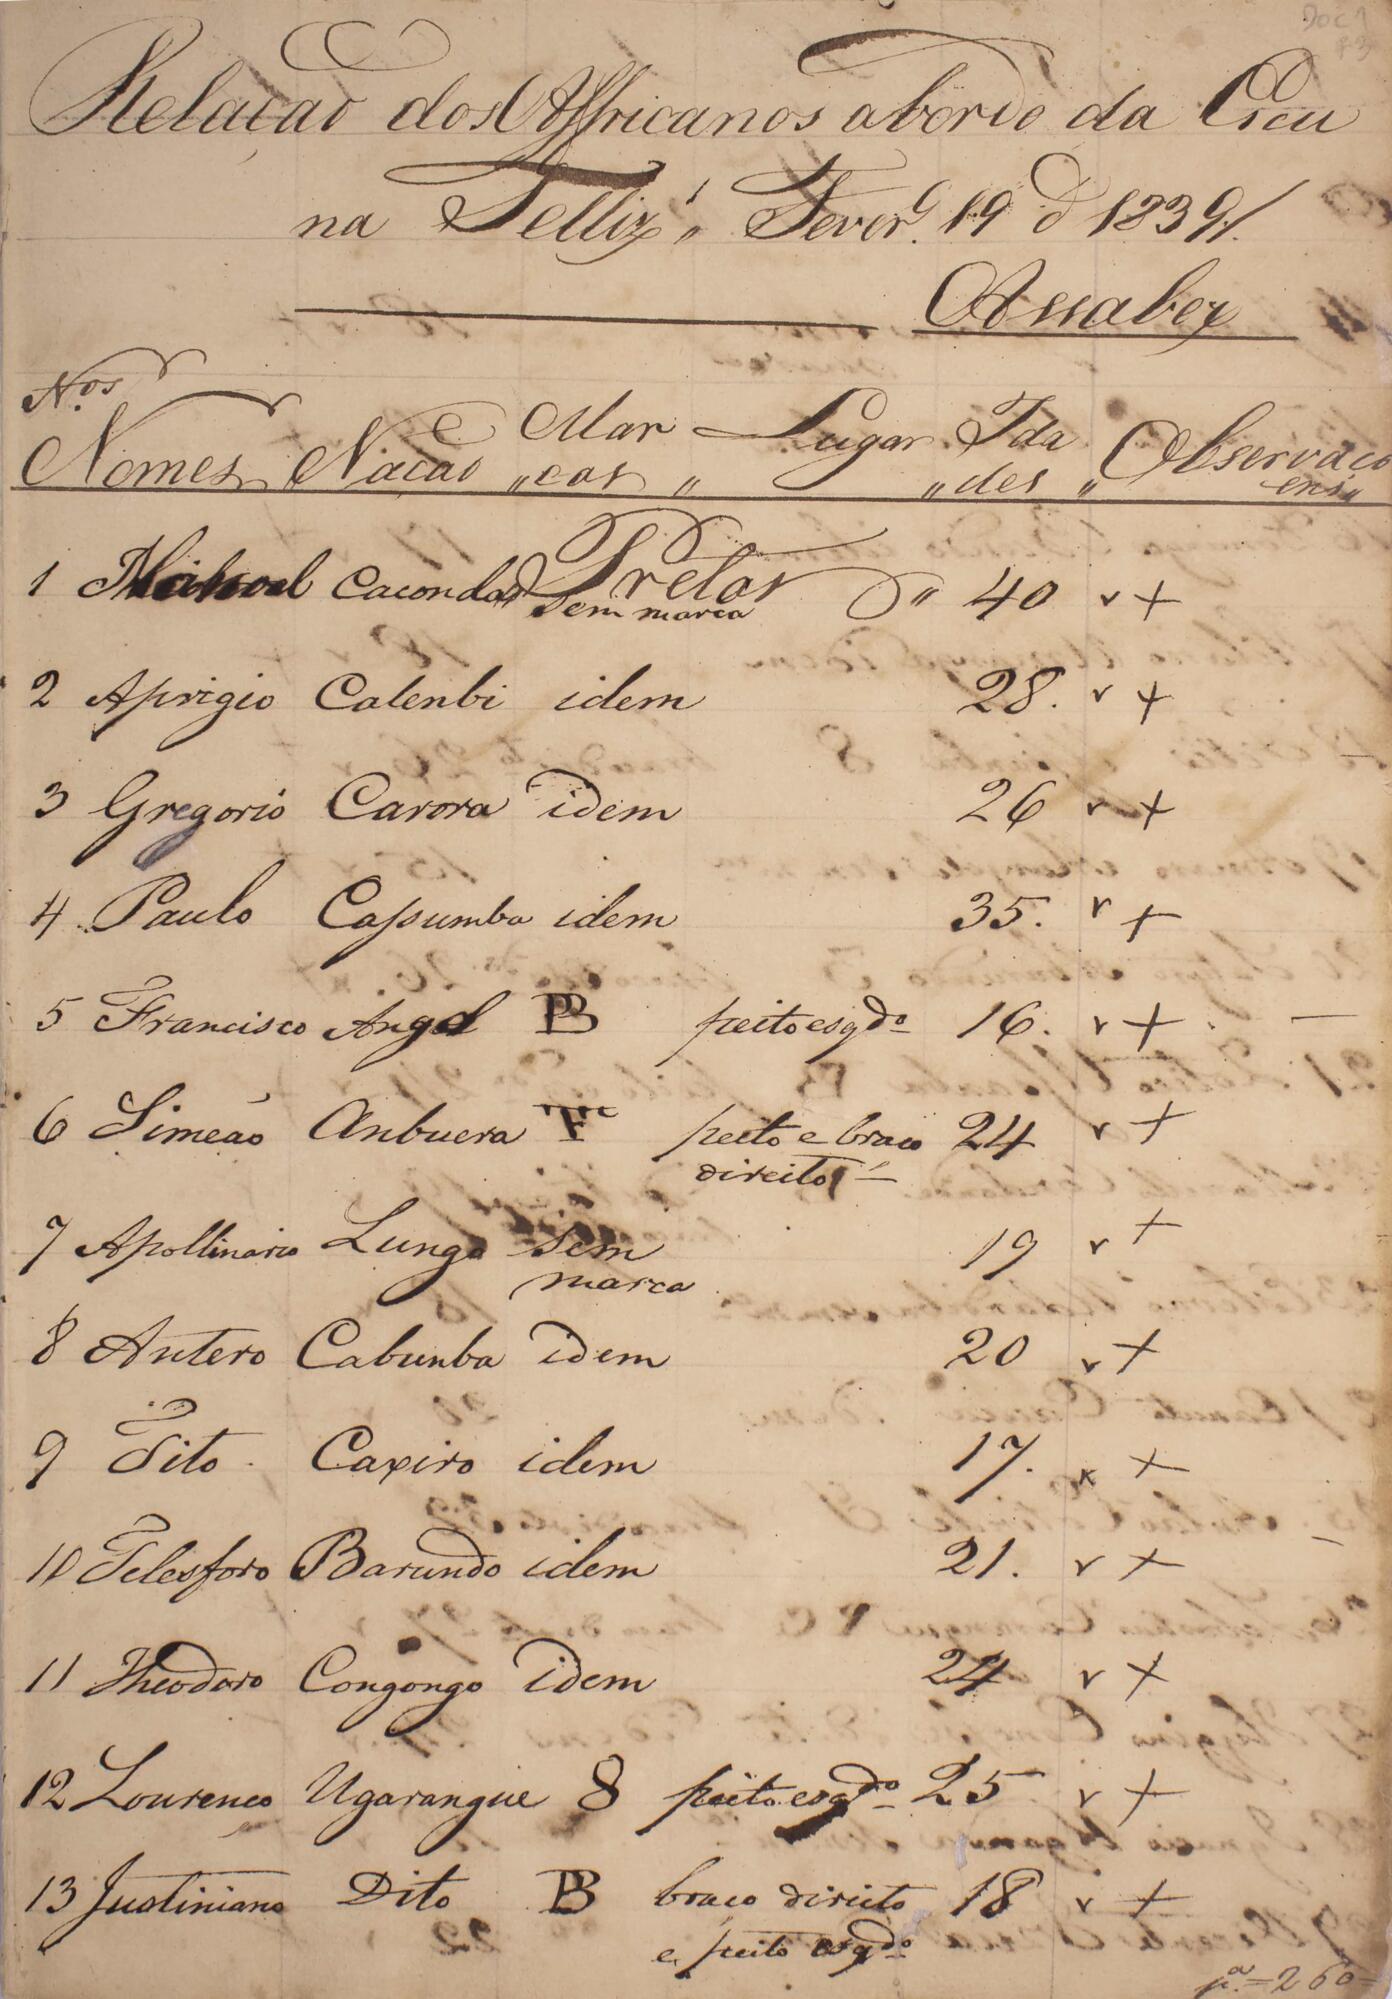 Doc 1
Relaçaõ dos Affricanos abordo da Escu
na Felliz" Fever.º 19 d 1839/.
Assaber
N.os
Nomes Naçaõ Mar Lugar Ida Observaço
"cas " "des " ens"
1 Manoel Caconda Pretos " 40 r +
Sem marca
2 Aprigio Calenbi idem 28. r +
3 Gregorio Carora idem 26 r +
4 Paulo Cassumba idem 35. r +
5 Francisco Angol B peito esqdo 16. r + —
6 Simeaõ Anbuera F peito e braco 24 r +
direito —
7 Apollinario Lunga sem 19 r +
marca
8 Antero Cabunba idem 20 r +
9 Tito Caxiro idem 17. r +
10 Telesforo Barundo idem 21. r +
11 Theodoro Congongo idem 24 r +
12 Lourenço Ugarangue 8 peito esqdo 25 r +
13 Justiniano Dito B braco direito 18 r +
e peito esqdo
p.a = 260 =